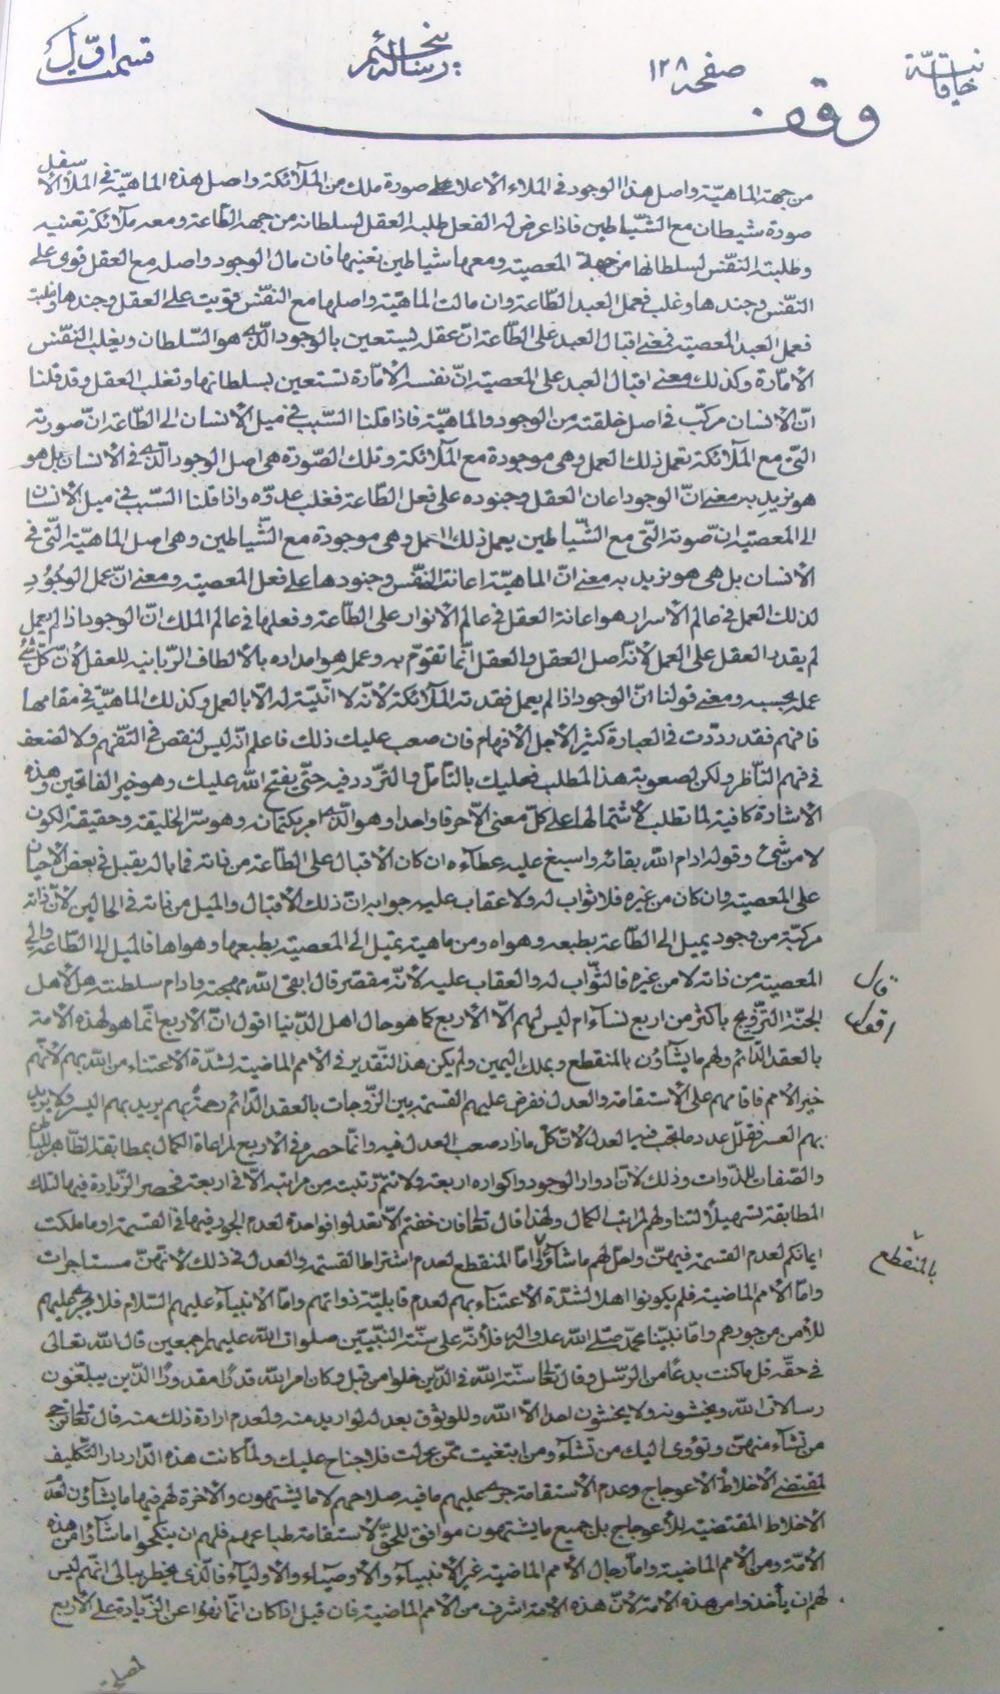 قسمت اوّل
رسالهٔ پنجم
صفحه ١٢٨
رسالة خاقانيّة
وقف
من جهة الماهيّة واصل هذا الوجود في الملاء الاعلا على صورة ملك من الملائكة واصل هذه الماهيّة في الملاء الاسفل
صورة شيطان مع الشّياطين فاذا عرض له الفعل طلبه العقل لسلطانه من جهة الطّاعة ومعه ملائكة تعنيه
وطلبته النّفس لسلطانها من جهة المعصية ومعها شياطين تعينها فان مال الوجود واصله مع العقل قوى على
النّفس وجندها وغلب فعمل العبد الطّاعة وان مالت الماهيّة واصلها مع النّفس قويت على العقل وجندها وغلبت
فعمل العبد المعصية فمعنى اقبال العبد على الطّاعة انّ عقله يستعين بالوجود الّذي هو السّلطان ويغلب النّفس
الامّارة وكذلك معنى اقبال العبد على المعصية انّ نفسه الامّارة تستعين بسلطانها وتغلب العقل وقد قلنا
انّ الانسان مركّب في اصل خلقته من الوجود والماهيّة فاذا قلنا السّبب في ميل الانسان الى الطّاعة انّ صورته
الّتي مع الملائكة تعمل ذلك العمل وهي موجودة مع الملائكة وتلك الصّورة هي اصل الوجود الّذي في الانسان بل هو
هو نريد به معنى انّ الوجود اعان العقل وجنوده على فعل الطّاعة فغلب عدوّه واذا قلنا السّبب في ميل الانسان
الى المعصية انّ صورته الّتي مع الشّياطين يعمل ذلك العمل وهي موجودة مع الشّياطين وهي اصل الماهيّة الّتي في
الانسان بل هي هو نريد به معنى انّ الماهيّة اعانة النّفس وجنودها على فعل المعصية ومعنى انّ عمل الوجود
لذلك العمل في عالم الاسرار هو اعانة العقل في عالم الانوار على الطّاعة وفعلها في عالم الملك انّ الوجود اذا لم يعمل
لم يقدر العقل على العمل لانّه اصل العقل والعقل انّما تقوّم به وعمله هو امداده بالالطاف الرّبّانيه للعقل لانّ كلّ شئ
عمله بحسبه ومعنى قولنا انّ الوجود اذا لم يعمل فقدته الملائكة لانّه لا انّيّة له الّا بالعمل وكذلك الماهيّة في مقامها
فافهم فقد ردّدت في العبارة كثيراً لاجل الافهام فان صعب عليك ذلك فاعلم انّه ليس لنقص في التفهيم ولا لضعف
في فهم النّاظر ولكن لصعوبة هذا المطلب فعليك بالتأمّل والتردّد فيه حتّى يفتح الله عليك وهو خير الفاتحين وهذه
الاشارة كافية لما تطلب لاشتمالها على كلّ معنى الّا حرفا واحدا وهو الّذي امر بكتمانه وهو سرّ الخليقة وحقيقة الكون
لا من شئ وقوله ادام الله بقائه واسبغ عليه عطاءه ان كان الاقبال على الطّاعة من ذاته فما باله يقبل في بعض الاحيان
على المعصية وان كان من غيره فلا ثواب له ولا عقاب عليه جوابه انّ ذلك الاقبال والميل من ذاته في الحالين لانّ ذاته
مركبّة من وجود يميل الى الطّاعة بطبعه وهواه ومن ماهية تميل الى المعصية بطبعها وهواها فالميل الى الطّاعة والى
المعصية من ذاته لا من غيره فالثّواب له والعقاب عليه لانّه مقتصر قال ابقى الله مهجته وادام سلطنته هل لاهل
الجنّة التّزويج باكثر من اربع نساء ام ليس لهم الّا الاربع كما هو حال اهل الدّنيا اقول انّ الاربع انّما هو لهذه الامّة
بالعقد الدّائم ولهم ما يشاؤن بالمنقطع وبملك اليمين ولم يكن هذا التّقدير في الامم الماضية لشدّة الاعتناء من الله بهم لانّهم
خير الامم فاقامهم على الاستقامة والعدل ففرض عليهم القسمة بين الزّوجات بالعقد الدّائم رحمة بهم يريد بهم اليسر ولا يريد
بهم العسر فقلّل عدد ما تجب فيه العدل لانّ كلّ ما زاد صعب العدل فيه وانّما حصره في الاربع لمراعاة الكمال بمطابقة الظّاهر للباطن
والصّفات للذّوات وذلك لانّ ادوار الوجود واكواره اربعة ولا تتمّ رتبة من مراتبه الّا في اربعة فحصر الزّيادة فيها لتلك
المطابقة تسهيلاً لتناولهم لمراتب الكمال ولهذا قال تعالى فان خفتم الّا تعدلوا فواحدة لعدم الجور فيها في القسمة او ما ملكت
ايمانكم لعدم القسمة فيهنّ واحلّ لهم ما شاؤا امّا المنقطع لعدم اشتراط القسمة والعدل في ذلك لانّهنّ مستاجرات
وامّا الامم الماضية فلم يكونوا اهلا لشدّة الاعتناء بهم لعدم قابليّة ذواتهم وامّا الانبياء عليهم السّلام فلا يجري عليهم
للأمن من جورهم وامّا نبيّنا محمّد صلّى الله عليه واله فلأنّه على سنّة النّبيّين صلوات الله عليهم اجمعين قال الله تعالى
في حقّه قل ما كنت بدعاً من الرّسل وقال تعالى سنّة الله في الّذين خلوا من قبل وكان امر الله قدرًا مقدورًا الّذين يبلّغون
رسالات الله ويخشونه ولا يخشون احدا الّا الله وللوثوق بعدله لو اريد منه ولعدم ارادة ذلك منه قال تعالى ترجي
من تشاء منهنّ وتؤوى اليك من تشاء ومن ابتغيت ممّن عزلت فلا جناح عليك ولمّا كانت هذه الدّار دار التّكليف
لمقتضى الاخلاط الاعوجاج وعدم الاستقامة جرى عليهم ما فيه صلاحهم لا ما يشتهون والاخرة لهم فيها ما يشاؤن لعدم
الاخلاط المقتضية للأعوجاج بل جميع ما يشتهون موافق للحقّ لاستقامة طباعهم فلهم ان ينكحوا ما شاؤا من هذه
الامّة ومن الامم الماضية وامّا رجال الامم الماضية غير الانبياء والاوصياء والاولياء فالّذي يخطر ببالى انّهم ليس
لهم ان يأخذوا من هذه الامّة لانّ هذه الامّة اشرف من الامم الماضية فان قيل اذا كان انّما نهوا عن الزّيادة على الاربع
قال
اقول
بالمنقطع
لمصلحة